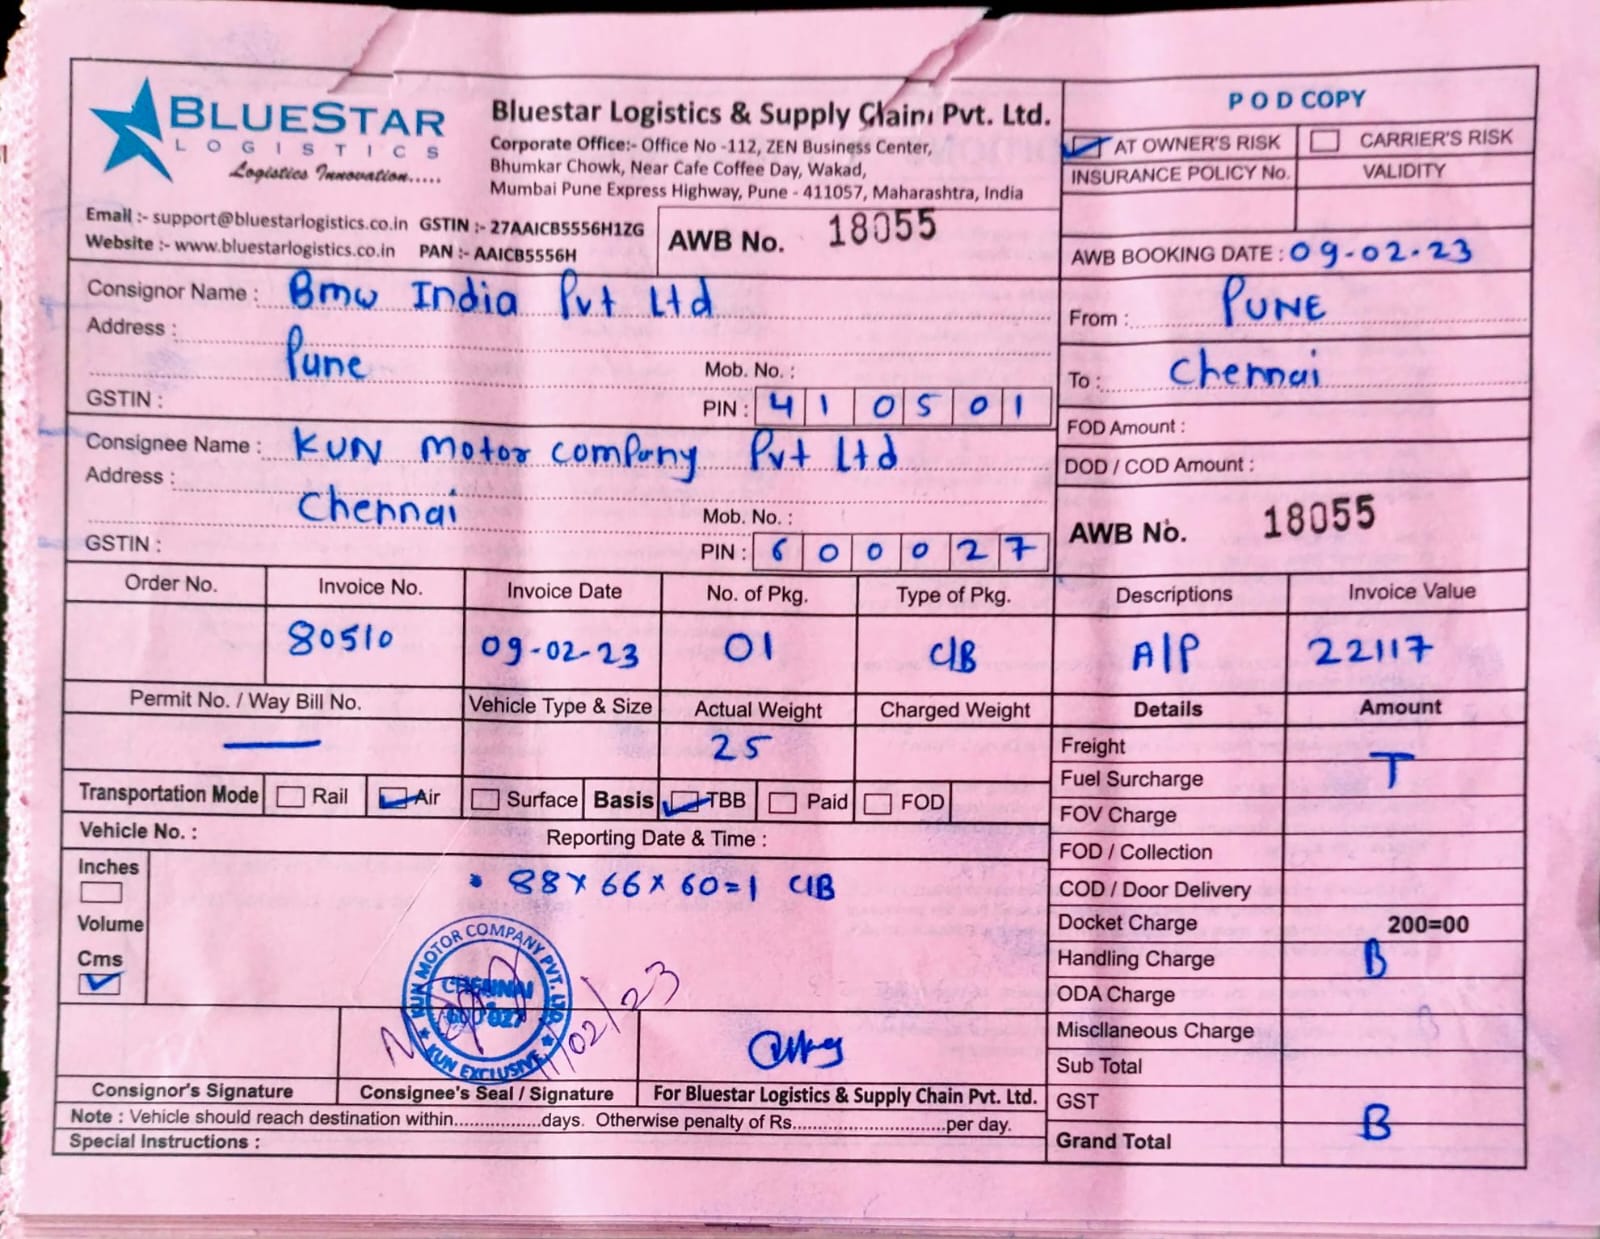 BLUESTAR
LOGISTICS
Logistics Innovation.....
Bluestar Logistics & Supply Chain Pvt. Ltd.
Corporate Office:- Office No -112, ZEN Business Center,
Bhumkar Chowk, Near Cafe Coffee Day, Wakad,
Mumbai Pune Express Highway, Pune - 411057, Maharashtra, India
Email :- support@bluestarlogistics.co.in GSTIN :- 27AAICB5556H1ZG
Website :- www.bluestarlogistics.co.in PAN :- AAICB5556H
AWB No. 18055
POD COPY
AT OWNER'S RISK CARRIER'S RISK
INSURANCE POLICY No. VALIDITY
AWB BOOKING DATE : 09-02-23
Consignor Name : Bmw India Pvt Ltd
Address :
Pune
Mob. No. :
GSTIN : PIN : 410501
From : PUNE
To : Chennai
Consignee Name : KUN Motor company Pvt Ltd
Address :
Chennai
Mob. No. :
GSTIN : PIN : 600027
FOD Amount :
DOD / COD Amount :
AWB No. 18055
Order No. Invoice No. Invoice Date No. of Pkg. Type of Pkg. Descriptions Invoice Value
80510 09-02-23 01 C/B A/P 22117
Permit No. / Way Bill No. Vehicle Type & Size Actual Weight Charged Weight Details Amount
— 25
Transportation Mode Rail Air Surface Basis TBB Paid FOD
Vehicle No. : Reporting Date & Time :
Inches
Volume
Cms
88 x 66 x 60 = 1 C/B
Freight
T
Fuel Surcharge
FOV Charge
FOD / Collection
COD / Door Delivery
Docket Charge 200=00
Handling Charge B
ODA Charge
Miscllaneous Charge
Sub Total
GST
B
Grand Total
KUN MOTOR COMPANY PVT. LTD.
CHENNAI
600 027
KUN EXCLUSIVE
11/02/23
Consignor's Signature Consignee's Seal / Signature For Bluestar Logistics & Supply Chain Pvt. Ltd.
Note : Vehicle should reach destination within.................days. Otherwise penalty of Rs..............................per day.
Special Instructions :